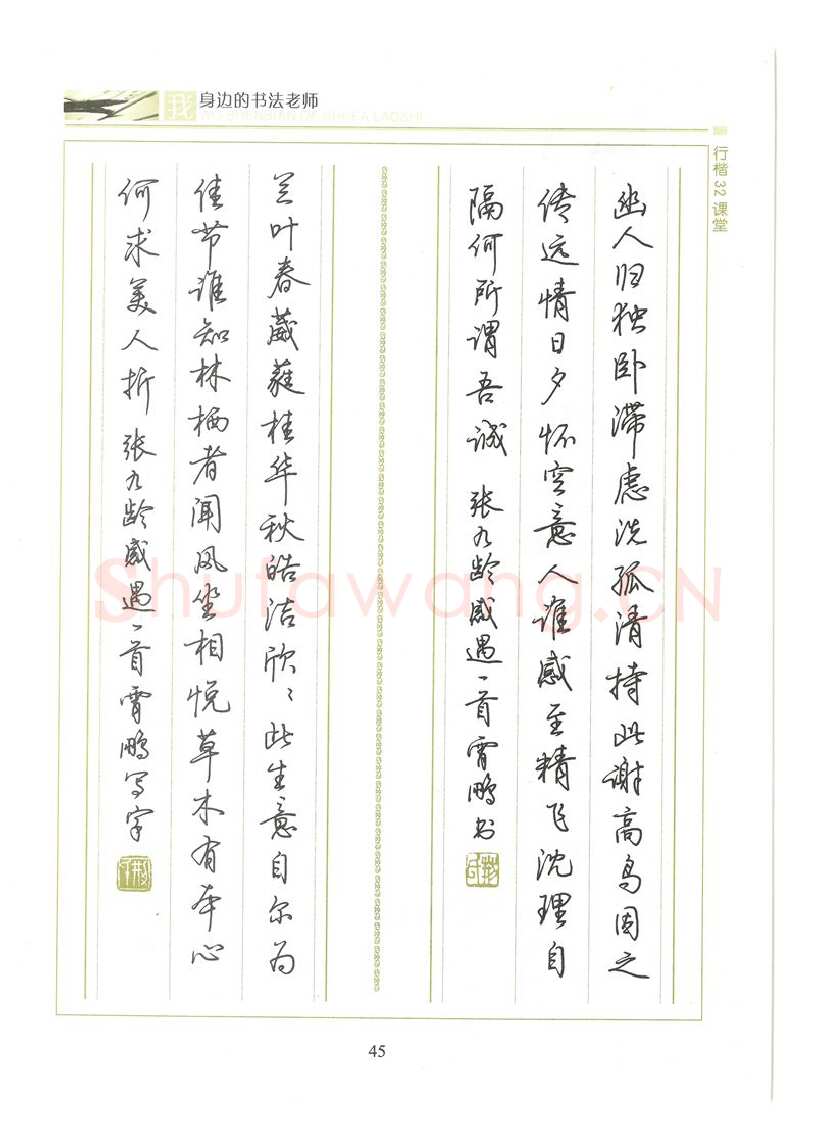 我 身边的书法老师
WO SHENBIAN DE SHUFA LAOSHI
行楷 32 课堂
幽人归独卧滞虑洗孤清持此谢高鸟因之
传远情日夕怀空意人谁感至精飞沈理自
隔何所谓吾诚 张九龄感遇一首霄鹏书
兰叶春葳蕤桂华秋皓洁欣〻此生意自尔为
佳节谁知林栖者闻风坐相悦草木有本心
何求美人折 张九龄感遇一首霄鹏写字
Shufawang.CN
45